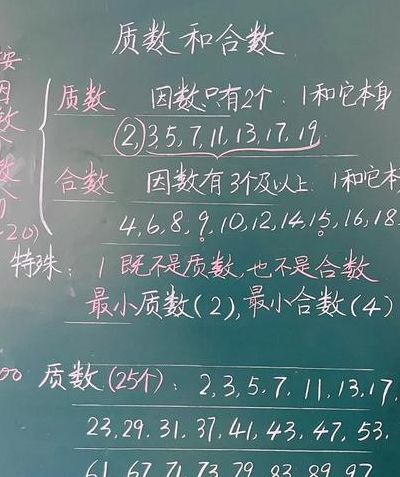 质数和合数
按因数个数分
(1-20)
质数 因数只有2个:1和它本身
2,3,5,7,11,13,17,19.
合数 因数有3个及以上:1和它本
4,6,8,9,10,12,14,15,16,18
特殊:1既不是质数,也不是合数
最小质数(2),最小合数(4)
00 质数(25个):2,3,5,7,11,13,17,
23,29,31,37,41,43,47,53,
61 67 71 73 79 83 89 97